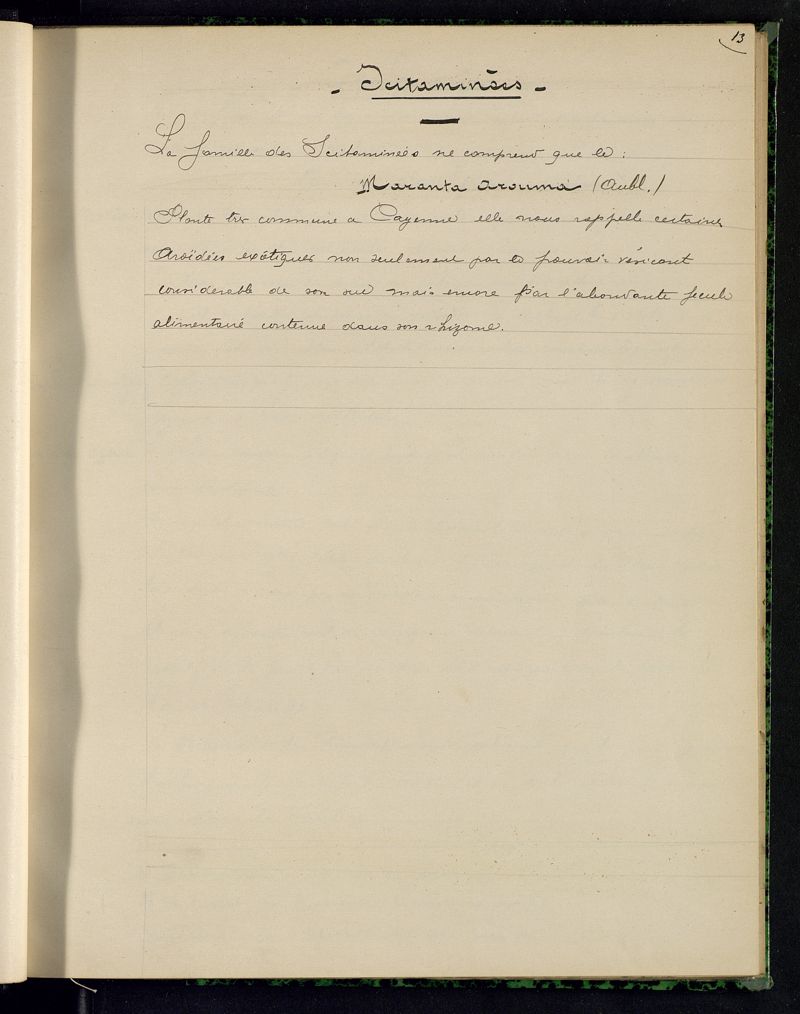 13
- Scitaminées -
La famille des Scitaminées ne comprend que le :
Maranta arouma (Aubl.)
Plante tres commune a Cayenne elle nous rappelle certaines
Aroïdées exotiques non seulement par le pouvoir vésicant
considerable de son suc mais encore par l'abondante fecule
alimentaire contenue dans son rhizome.